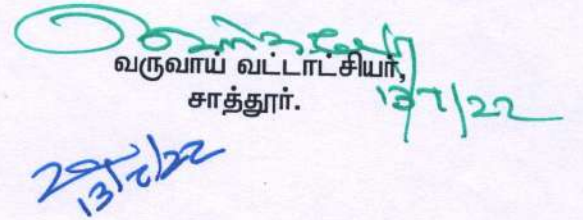 வருவாய் வட்டாட்சியர்,
சாத்தூர்.
13/7/22
13/7/22